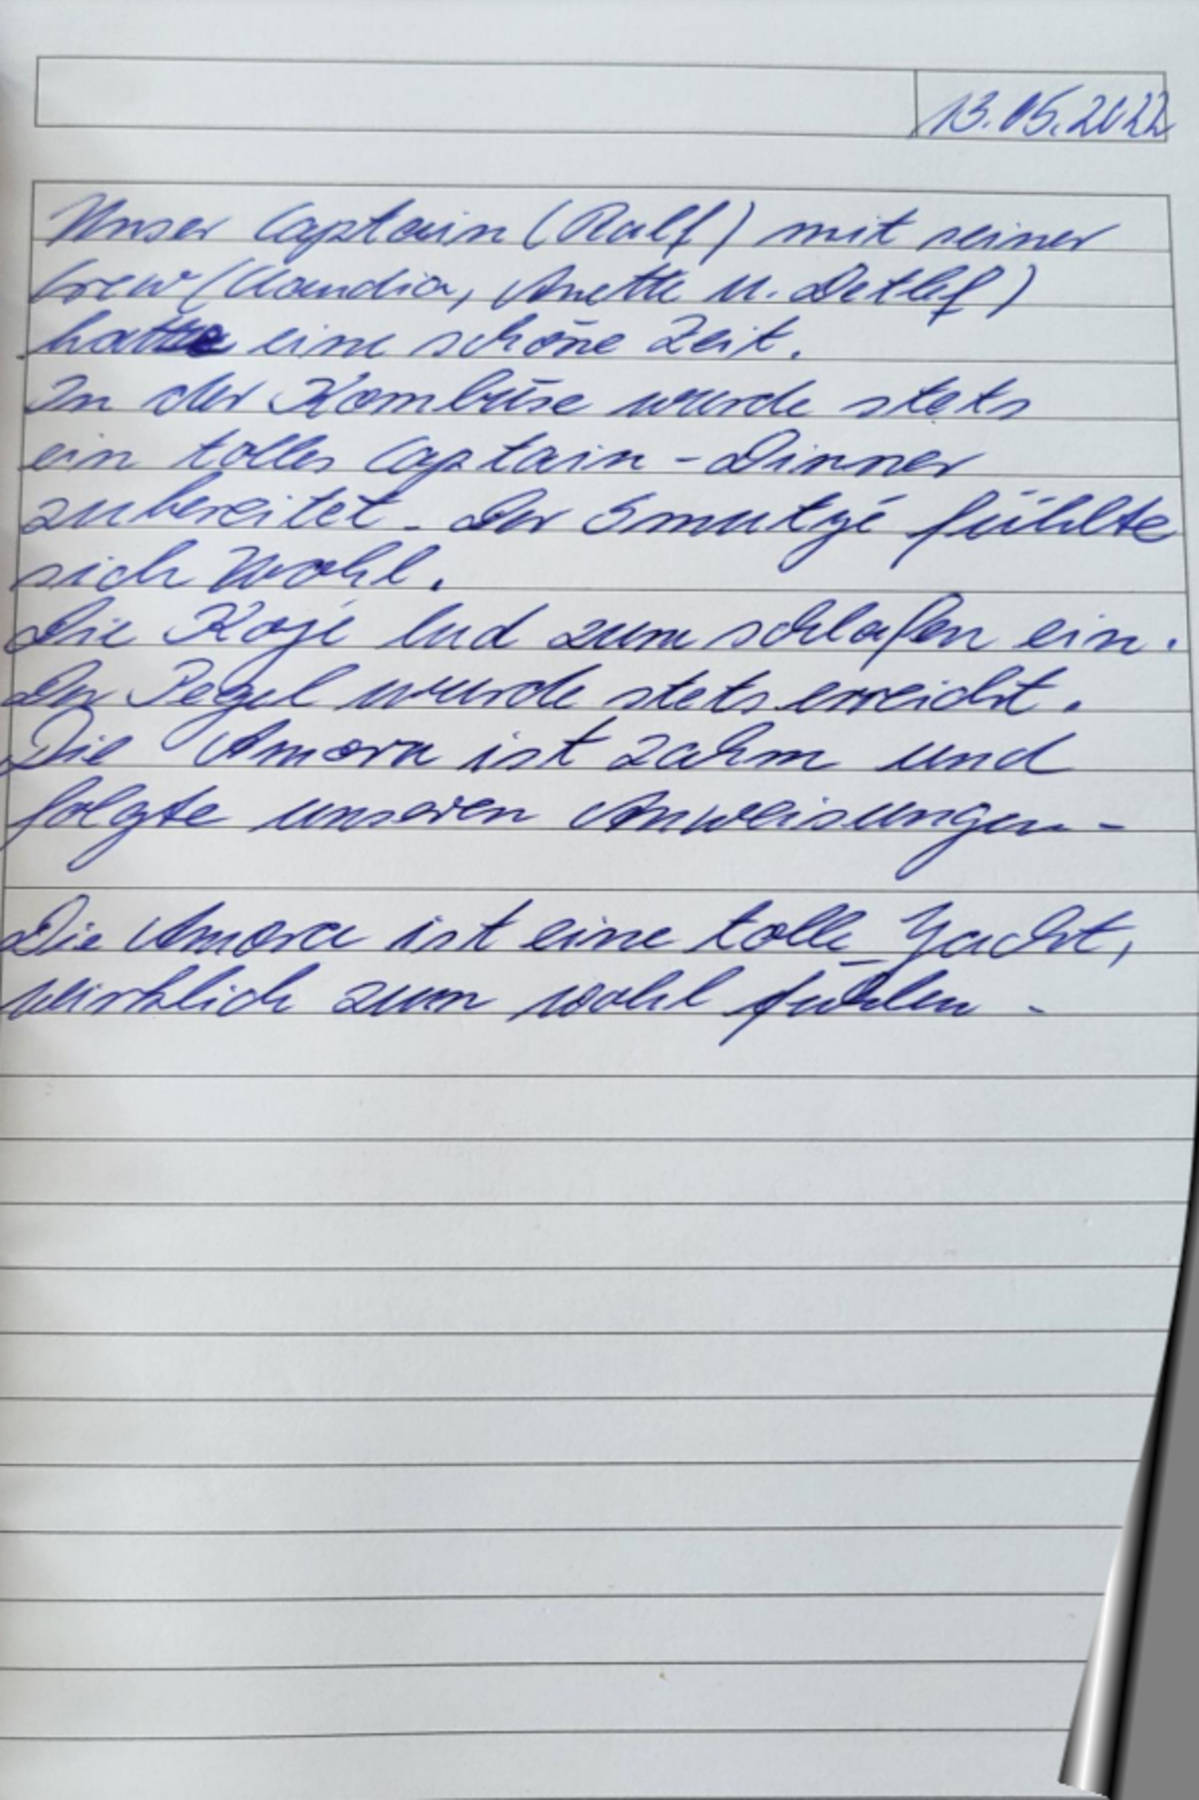 13.05.2022
Unser Captain (Ralf) mit seiner
Crew (Claudia, Anette u. Detlef)
hatte eine schöne Zeit.
In der Kombüse wurde stets
ein tolles Captain-Dinner
zubereitet. Der Smutje fühlte
sich wohl.
Die Koje lud zum schlafen ein.
Der Pegel wurde stets erreicht.
Die Amora ist zahm und
folgte unseren Anweisungen.
Die Amora ist eine tolle Yacht,
wirklich zum wohl fühlen.